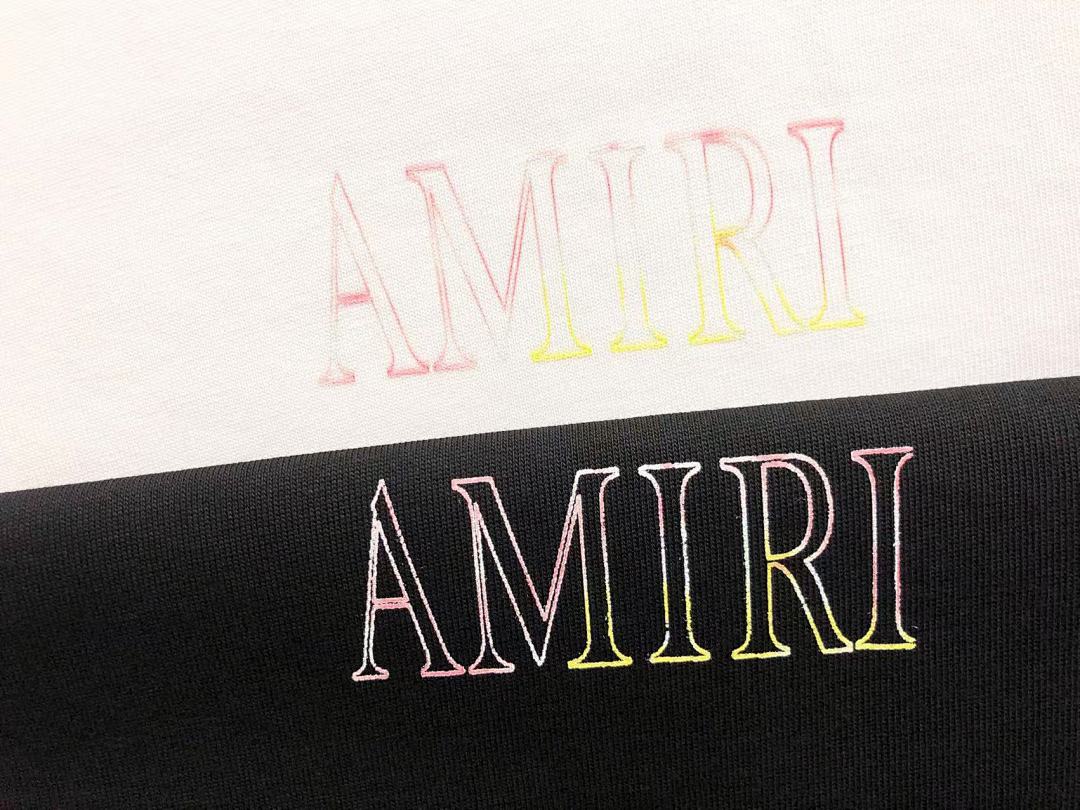 AMIRI
AMIRI